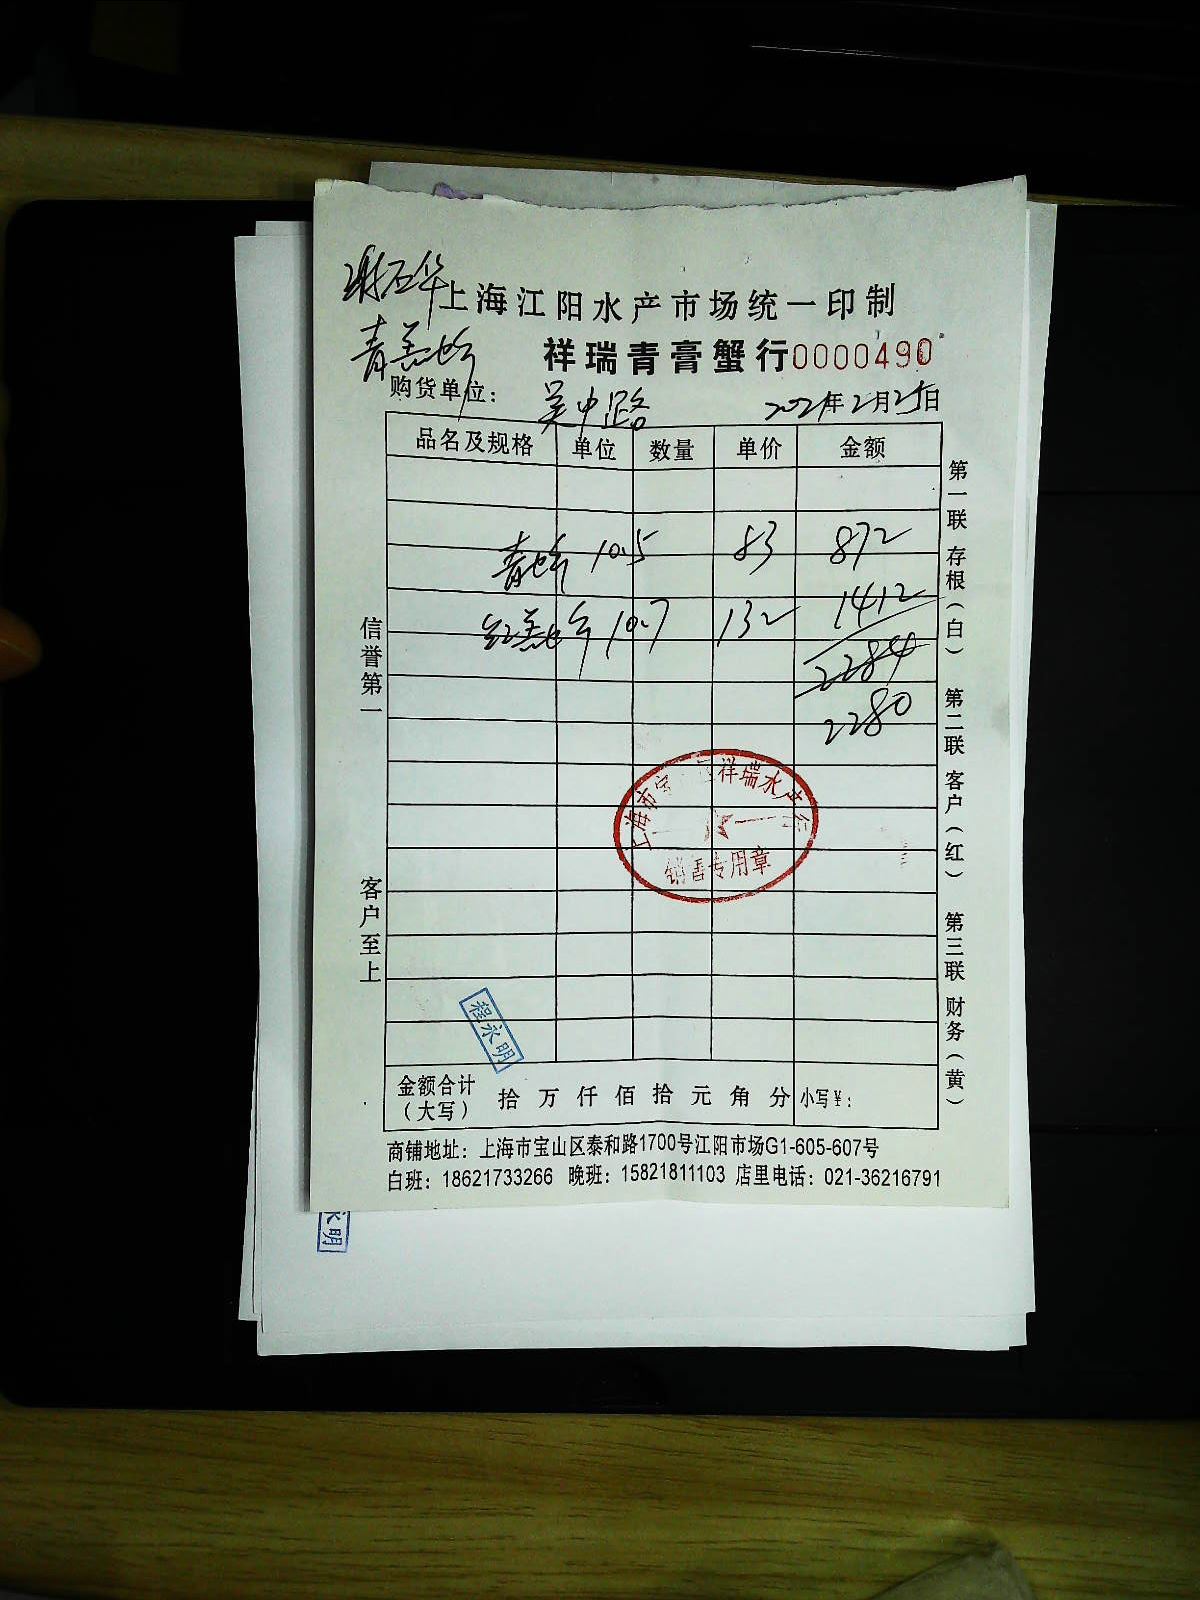 上海江阳水产市场统一印制
祥瑞青膏蟹行0000490
购货单位：吴中路
2021年2月25日
品名及规格 单位 数量 单价 金额
10.5 83 872
10.7 132 1412
2284
2280
信誉第一
客户至上
第一联 存根（白） 第二联 客户（红） 第三联 财务（黄）
上海市宝 区祥瑞水产行
销售专用章
程永明
金额合计（大写） 拾 万 仟 佰 拾 元 角 分 小写￥：
商铺地址：上海市宝山区泰和路1700号江阳市场G1-605-607号
白班：18621733266 晚班：15821811103 店里电话：021-36216791
永明